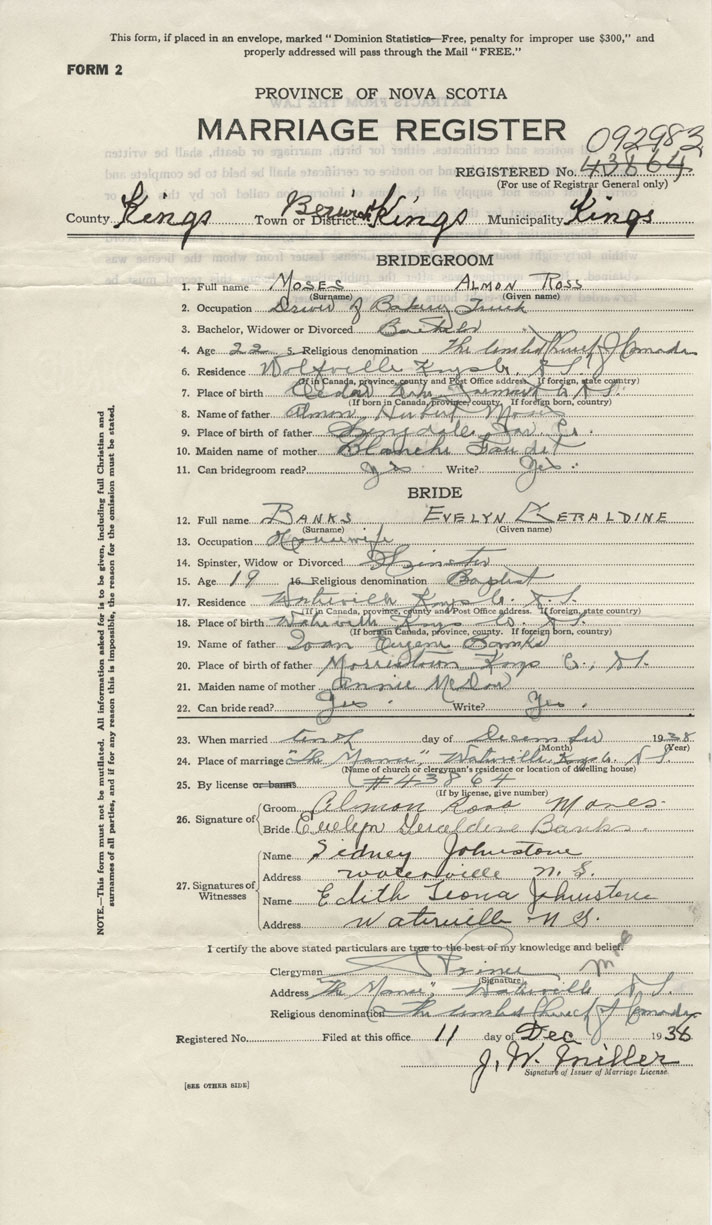 This form, if placed in an envelope, marked "Dominion Statistics—Free, penalty for improper use $300," and
properly addressed will pass through the Mail "FREE."
FORM 2
PROVINCE OF NOVA SCOTIA
MARRIAGE REGISTER
092983
REGISTERED No. 43864
(For use of Registrar General only)
County Kings Town or District Berwick Kings Municipality Kings
BRIDEGROOM
1. Full name MOSES ALMON ROSS
(Surname) (Given name)
2. Occupation Driver of Bakery Truck
3. Bachelor, Widower or Divorced Bachelor
4. Age 22 5. Religious denomination The United Church of Canada
6. Residence Wolfville Kings Co. N.S.
(If in Canada, province, county and Post Office address. If foreign, state country)
7. Place of birth Cedar Lake Yarmouth Co. N.S.
(If born in Canada, province, county. If foreign born, country)
8. Name of father Almon Herbert Moses
9. Place of father
10. Maiden name of mother Blanche
11. Can bridegroom read? Yes Write? Yes
BRIDE
12. Full name BANKS EVELYN GERALDINE
(Surname) (Given name)
13. Occupation Housewife
14. Spinster, Widow or Divorced Spinster
15. Age 19 16. Religious denomination Baptist
17. Residence Waterville Kings Co. N.S.
(If in Canada, province, county and Post Office address. If foreign, state country)
18. Place of birth Waterville Kings Co. N.S.
(If born in Canada, province, county. If foreign born, country)
19. Name of father Eugene Banks
20. Place of birth of father Morristown Kings Co., N.S.
21. Maiden name of mother Annie
22. Can bride read? Yes Write? Yes
23. When married tenth day of December 1938
(Month) (Year)
24. Place of marriage "The Manse", Waterville Kings Co. N.S.
(Name of church or clergyman's residence or location of dwelling house)
25. By license or banns #43864
(If by license, give number)
26. Signature of
Groom Almon Ross Moses
Bride Evelyn Geraldine Banks
27. Signatures of Witnesses
Name Sidney Johnstone
Address Waterville N.S.
Name Edith Leona Johnstone
Address Waterville N.S.
I certify the above stated particulars are true to the best of my knowledge and belief.
Clergyman Prince
(Signature)
Address "The Manse", Waterville N.S.
Religious denomination The United Church of Canada
Registered No. Filed at this office 11 day of Dec 1938
J. W. Miller
Signature of Issuer of Marriage License.
[SEE OTHER SIDE]
NOTE.—This form must not be mutilated. All information asked for is to be given, including full Christian and
surnames of all parties, and if for any reason this is impossible, the reason for the emission must be stated.